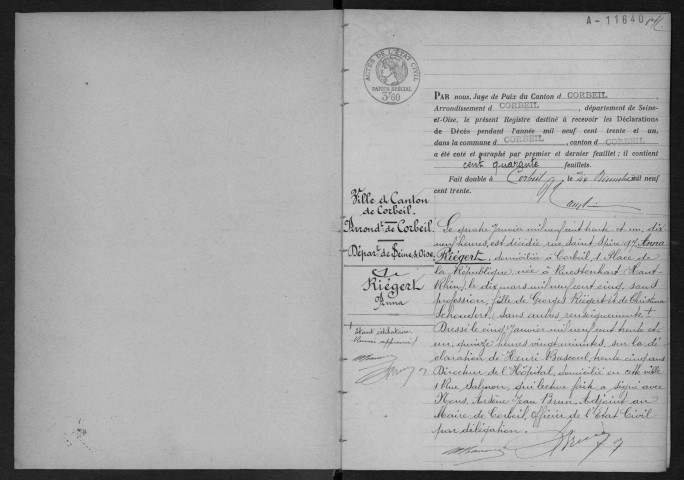 A-11640
ACTES DE L'ÉTAT CIVIL
PAPIER SPÉCIAL
3f60
PAR nous, Juge de Paix du Canton d CORBEIL
Arrondissement d CORBEIL, département de Seine-
et-Oise, le présent Registre destiné à recevoir les Déclarations
de Décès pendant l'année mil neuf cent trente et un,
dans la commune d CORBEIL, canton d CORBEIL
a été coté et paraphé par premier et dernier feuillet; il contient
cent quarante feuillets.
Fait double à Corbeil, le dix Décembre mil neuf
cent trente.
Ville et Canton
de Corbeil.
Arrondt de Corbeil.
Départt de Seine & Oise.
1
Riégert
Anna
Le quatre Janvier mil neuf cent trente et un, dix
neuf heures, est décédée rue Saint Spire 97, Anna
Riégert, domiciliée à Corbeil, 1 Place de
la République, née à Ruestenhart (Haut-
Rhin), le dix mars mil neuf cent cinq, sans
profession, fille de Georges Riégert et de Christina
(sans autres renseignements) +
Dressé le cinq Janvier mil neuf cent trente et
un, quinze heures vingt minutes, sur la dé
claration de Henri Bascoul, trente cinq ans
Directeur de l'Hôpital, domicilié en cette ville
1 Rue Salmon, qui lecture faite a signé avec
Nous, Arsène Jean Brun, Adjoint au
Maire de Corbeil, Officier de l'État-Civil
par délégation.